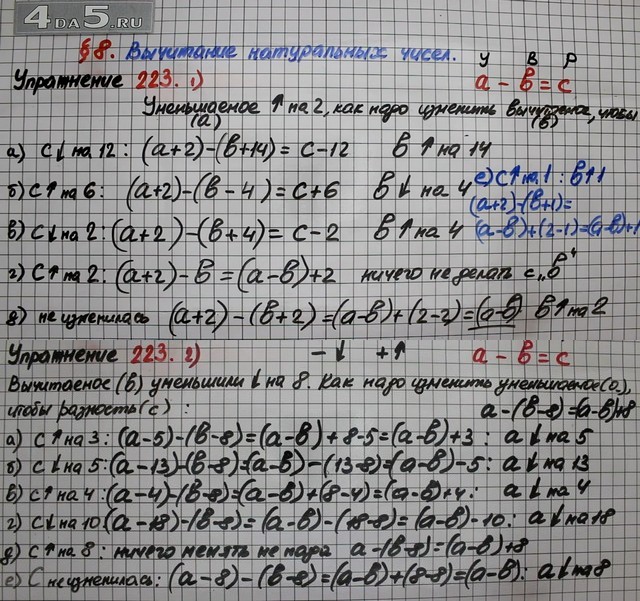 4DA5.RU
§8. Вычитание натуральных чисел.
У В Р
Упражнение 223. 1) a - в = c
Уменьшаемое ↑ на 2, как надо изменить вычитаемое, чтобы
(a) (в)
а) c↓ на 12: (a+2)-(в+14)= c-12 в ↑ на 14
б) c↑ на 6: (a+2)-(в-4)=c+6 в ↓ на 4
е) c↑ на 1: в↑1
(a+2)-(в+1)=
(a-в)+(2-1)=(a-в)+1
в) c↓ на 2: (a+2)-(в+4)=c-2 в↑ на 4
г) c↑ на 2: (a+2)-в=(a-в)+2 ничего не делать с „в“
д) не изменилась (a+2)-(в+2)=(a-в)+(2-2)=(a-в) в↑ на 2
Упражнение 223. 2) -↓ +↑ a-в=c
Вычитаемое (в) уменьшили ↓ на 8. Как надо изменить уменьшаемое(a),
чтобы разность(c): a-(в-8)=(a-в)+8
а) c↑ на 3: (a-5)-(в-8)=(a-в)+8-5=(a-в)+3: a↓ на 5
б) c↓ на 5: (a-13)-(в-8)=(a-в)-(13-8)=(a-в)-5: a↓ на 13
в) c↑ на 4: (a-4)-(в-8)=(a-в)+(8-4)=(a-в)+4: a↓ на 4
г) c↓ на 10 (a-18)-(в-8)=(a-в)-(18-8)=(a-в)-10: a↓ на 18
д) c↑ на 8: ничего менять не надо a-(в-8)=(a-в)+8
е) C не изменилась: (a-8)-(в-8)=(a-в)+(8-8)=(a-в): a↓ на 8